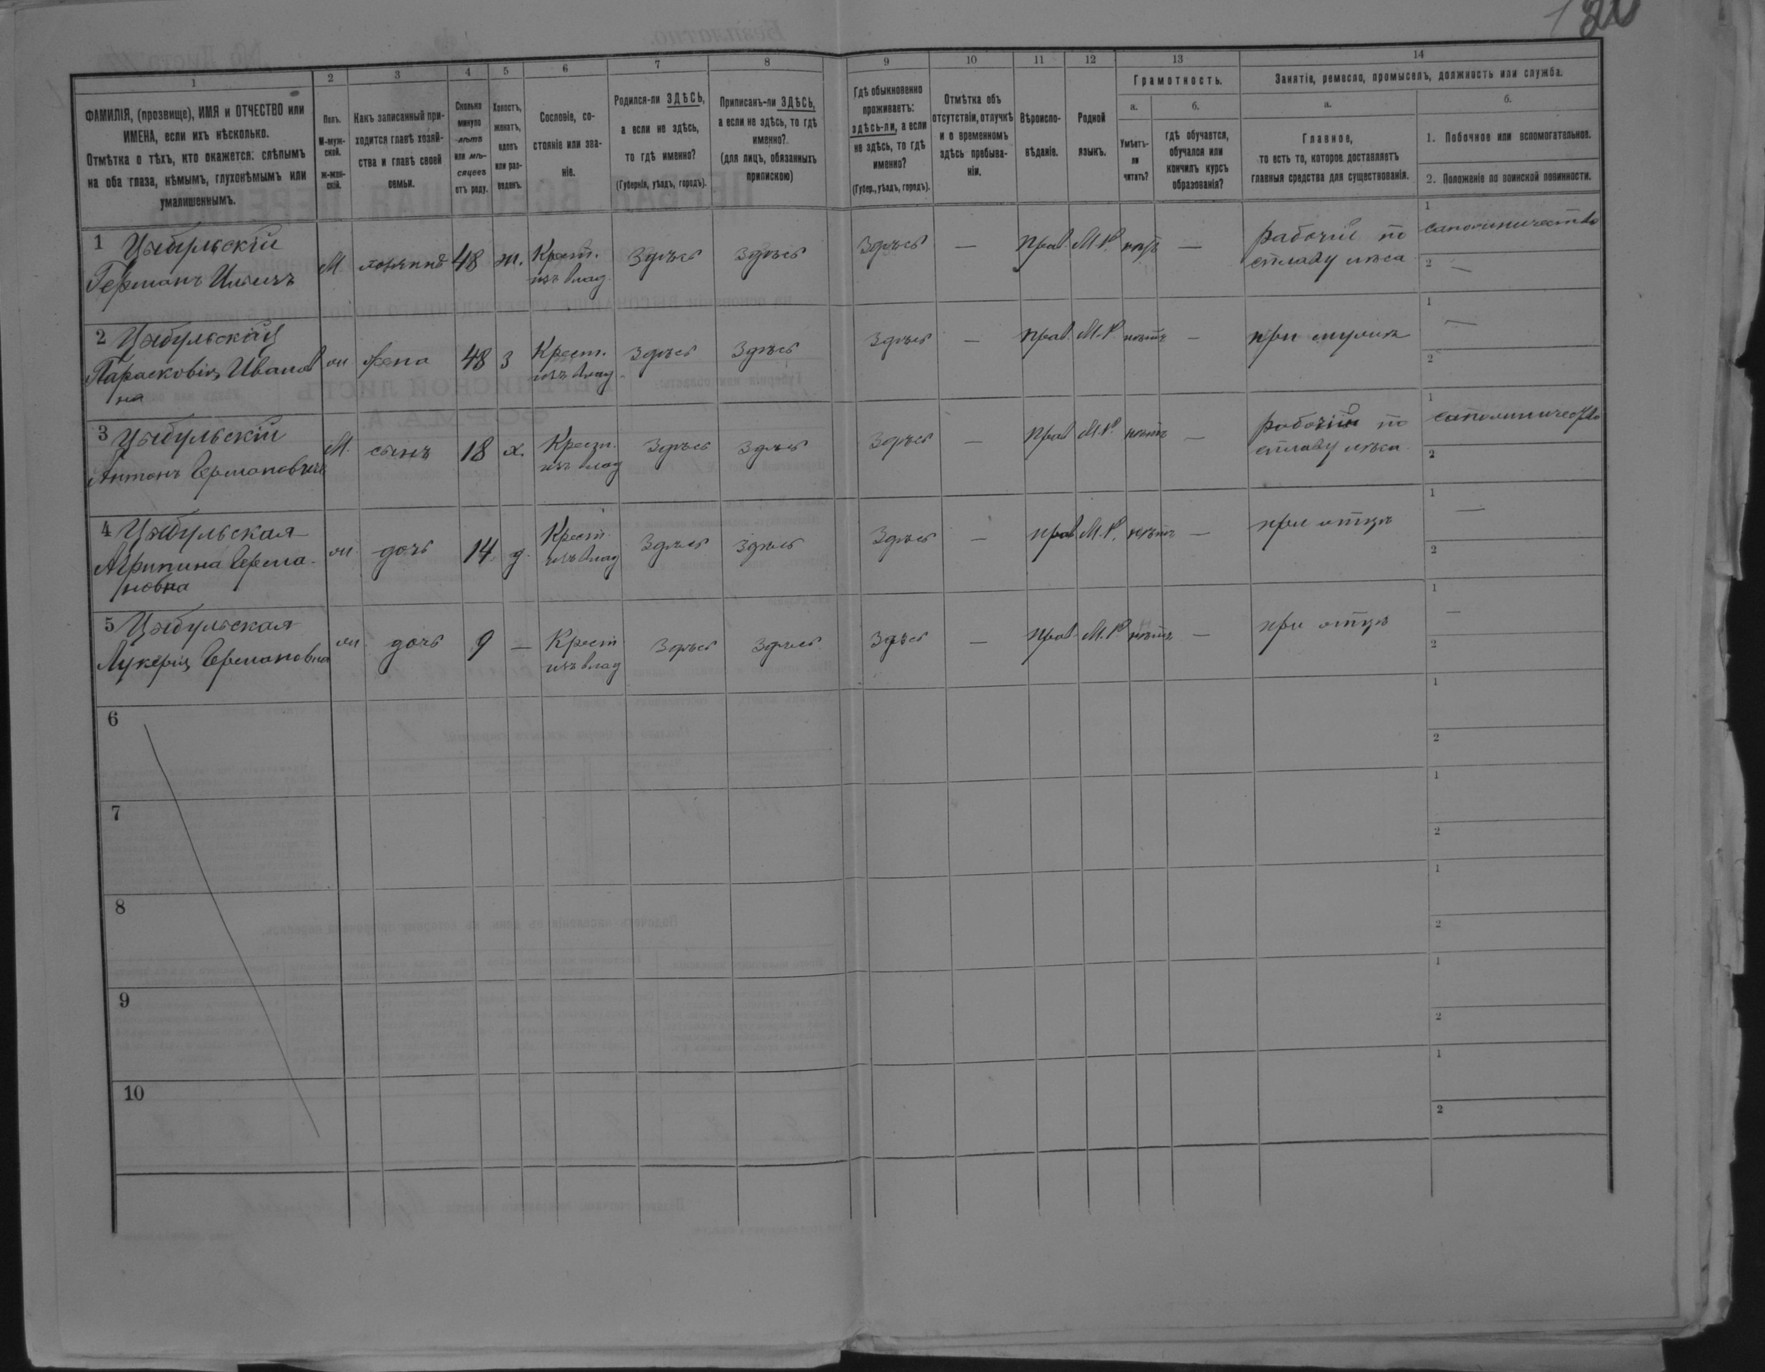 1 2 3 4 5 6 7 8 9 10 11 12 13 14
ФАМИЛІЯ, (прозвище), ИМЯ и ОТЧЕСТВО или
ИМЕНА, если ихъ нѣсколько.
Отмѣтка о тѣхъ, кто окажется: слѣпымъ
на оба глаза, нѣмымъ, глухонѣмымъ или
умалишеннымъ.
Полъ.
М-муж-
ской.
ж-жен-
скій.
Какъ записанный при-
ходится главѣ хозяй-
ства и главѣ своей
семьи.
Сколько
минуло
лѣтъ
или мѣ-
сяцевъ
отъ роду.
Холостъ,
женатъ,
вдовъ
или раз-
веденъ.
Сословіе, со-
стояніе или зва-
ніе.
Родился-ли ЗДѢСЬ,
а если не здѣсь,
то гдѣ именно?
(Губернія, уѣздъ, городъ).
Приписанъ-ли ЗДѢСЬ,
а если не здѣсь, то гдѣ
именно?
(для лицъ, обязанныхъ
припискою)
Гдѣ обыкновенно
проживаетъ:
здѣсь-ли, а если
не здѣсь, то гдѣ
именно?
(Губер., уѣздъ, городъ).
Отмѣтка объ
отсутствіи, отлучкѣ
и о временномъ
здѣсь пребыва-
ніи.
Вѣроиспо-
вѣданіе.
Родной
языкъ.
Грамотность.
а.
Умѣетъ-
ли
читать?
б.
гдѣ обучается,
обучался или
кончилъ курсъ
образованія?
Занятіе, ремесло, промыселъ, должность или служба.
а.
Главное,
то есть то, которое доставляетъ
главныя средства для существованія.
б.
1. Побочное или вспомогательное.
2. Положеніе по воинской повинности.
1 Цыбульскій
Германъ Ильичъ
М. хозяинъ 48 ж. Крест.
изъ влад
Здѣсь Здѣсь Здѣсь — прав М.Р нѣтъ —
Рабочій по
сплаву лѣса
1
2 —
2 Цыбульская
Парасковія Иванов
на
ж жена 48 з Крест.
изъ влад
Здѣсь Здѣсь Здѣсь — прав М.Р нѣтъ —
при мужѣ
1 —
2
3 Цыбульскій
Антонъ Германовичъ
М. сынъ 18 х. Крест.
изъ влад
Здѣсь Здѣсь Здѣсь — прав М.Р нѣтъ —
Рабочій по
сплаву лѣса
1
2
4 Цыбульская
Агрипина Герма-
новна
ж дочь 14 д. Крест.
изъ влад
Здѣсь Здѣсь Здѣсь — прав М.Р. нѣтъ —
при отцѣ
1 —
2
5 Цыбульская
Лукерія Германовна
ж дочь 9 — Крест
изъ влад
Здѣсь Здѣсь Здѣсь — прав М.Р нѣтъ —
при отцѣ
1 —
2
6
1
2
7
1
2
8
1
2
9
1
2
10
1
2